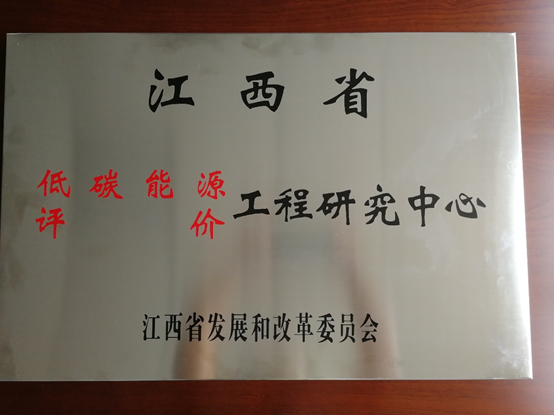 江西省
低碳能源
评价
工程研究中心
江西省发展和改革委员会